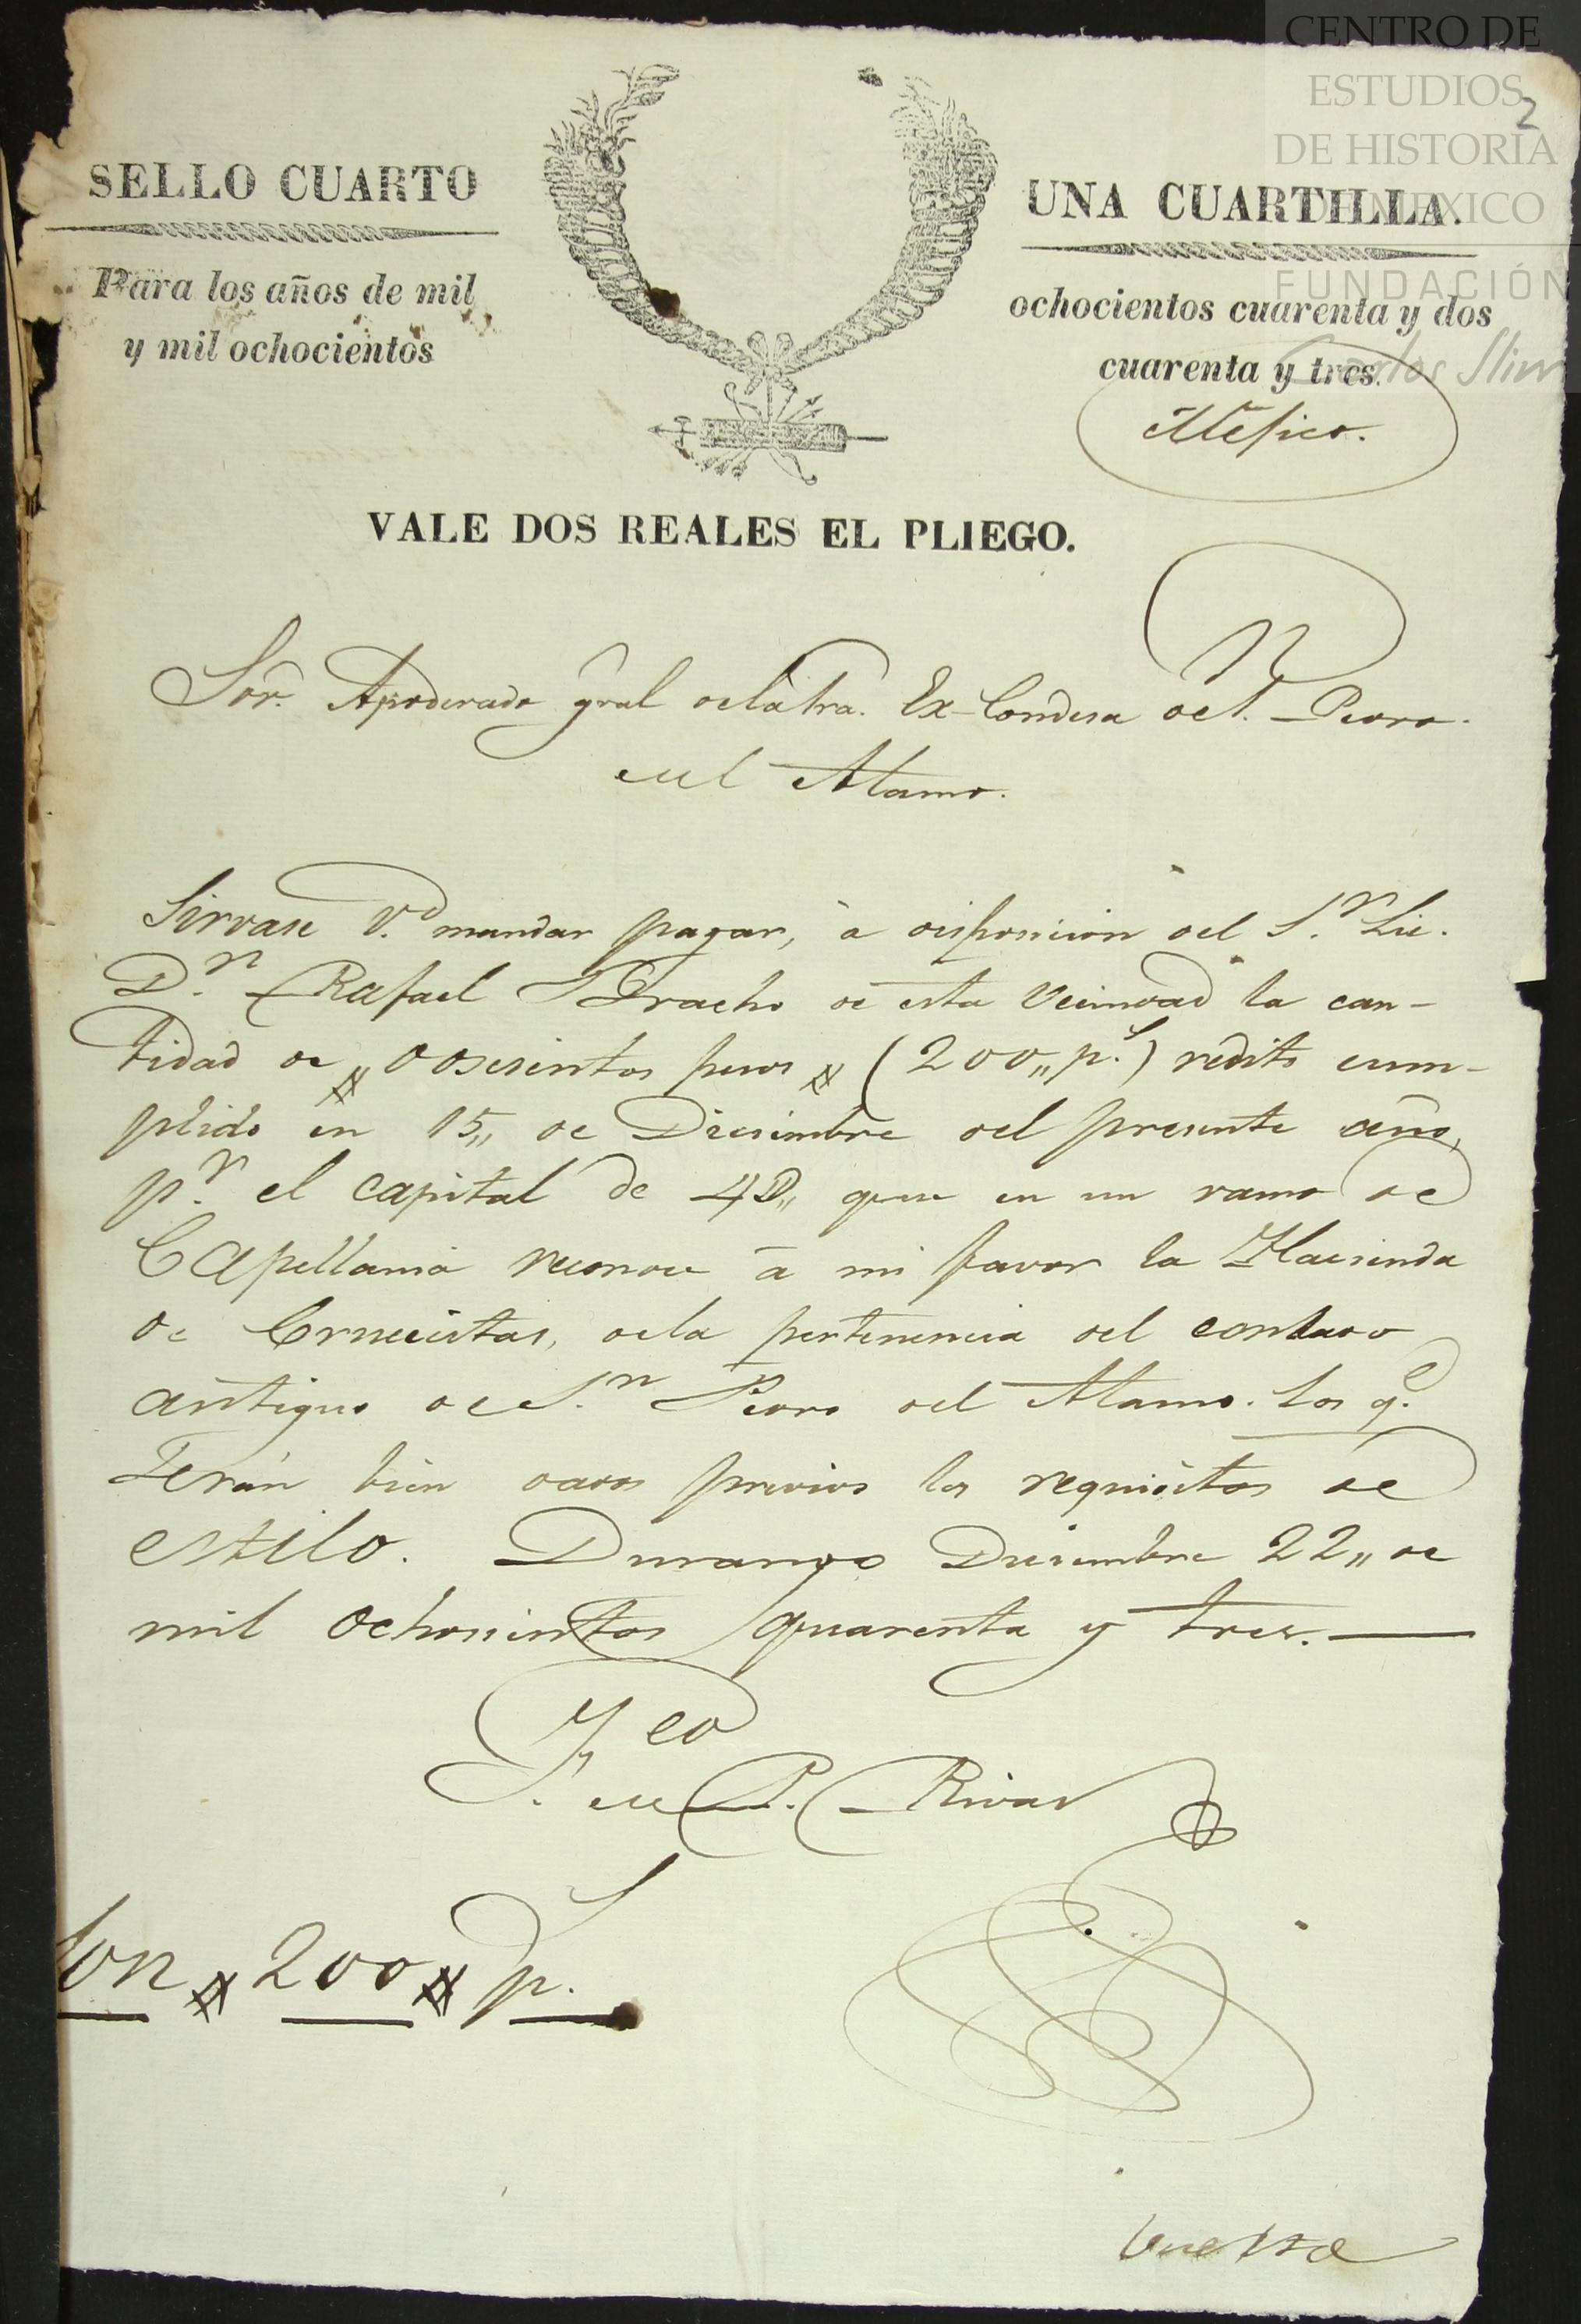 CENTRO DE
ESTUDIOS
DE HISTORIA
DE MEXICO
FUNDACIÓN
Carlos Slim
2
SELLO CUARTO
UNA CUARTILLA.
Para los años de mil
ochocientos cuarenta y dos
y mil ochocientos
cuarenta y tres.
Méjico.
VALE DOS REALES EL PLIEGO.
Sor. Apoderado gral dela Sra. Ex-Condesa de S.n Pedro
del Alamo.
Sirvase V.d mandar pagar, à disposicion del S.r Lic.
D.n Rafael Bracho de esta Vecindad la can-
tidad de „ dosscientos pesos „ (200„ p.s) redito cum-
plido en 15„ de Diciembre del presente año,
p.r el capital de 4D„ que en un ramo de
Capellania reconoce à mi favor la Hacienda
de Crucecitas, dela pertenencia del condado
antiguo de S.n Pedro del Alamo. Los q.e
Serán bien dados previos los requisitos de
estilo. Durango Diciembre 22„ de
mil ochosientos quarenta y tres.
F.co de P. Rivas
Son # 200 # p.s
Vuelta